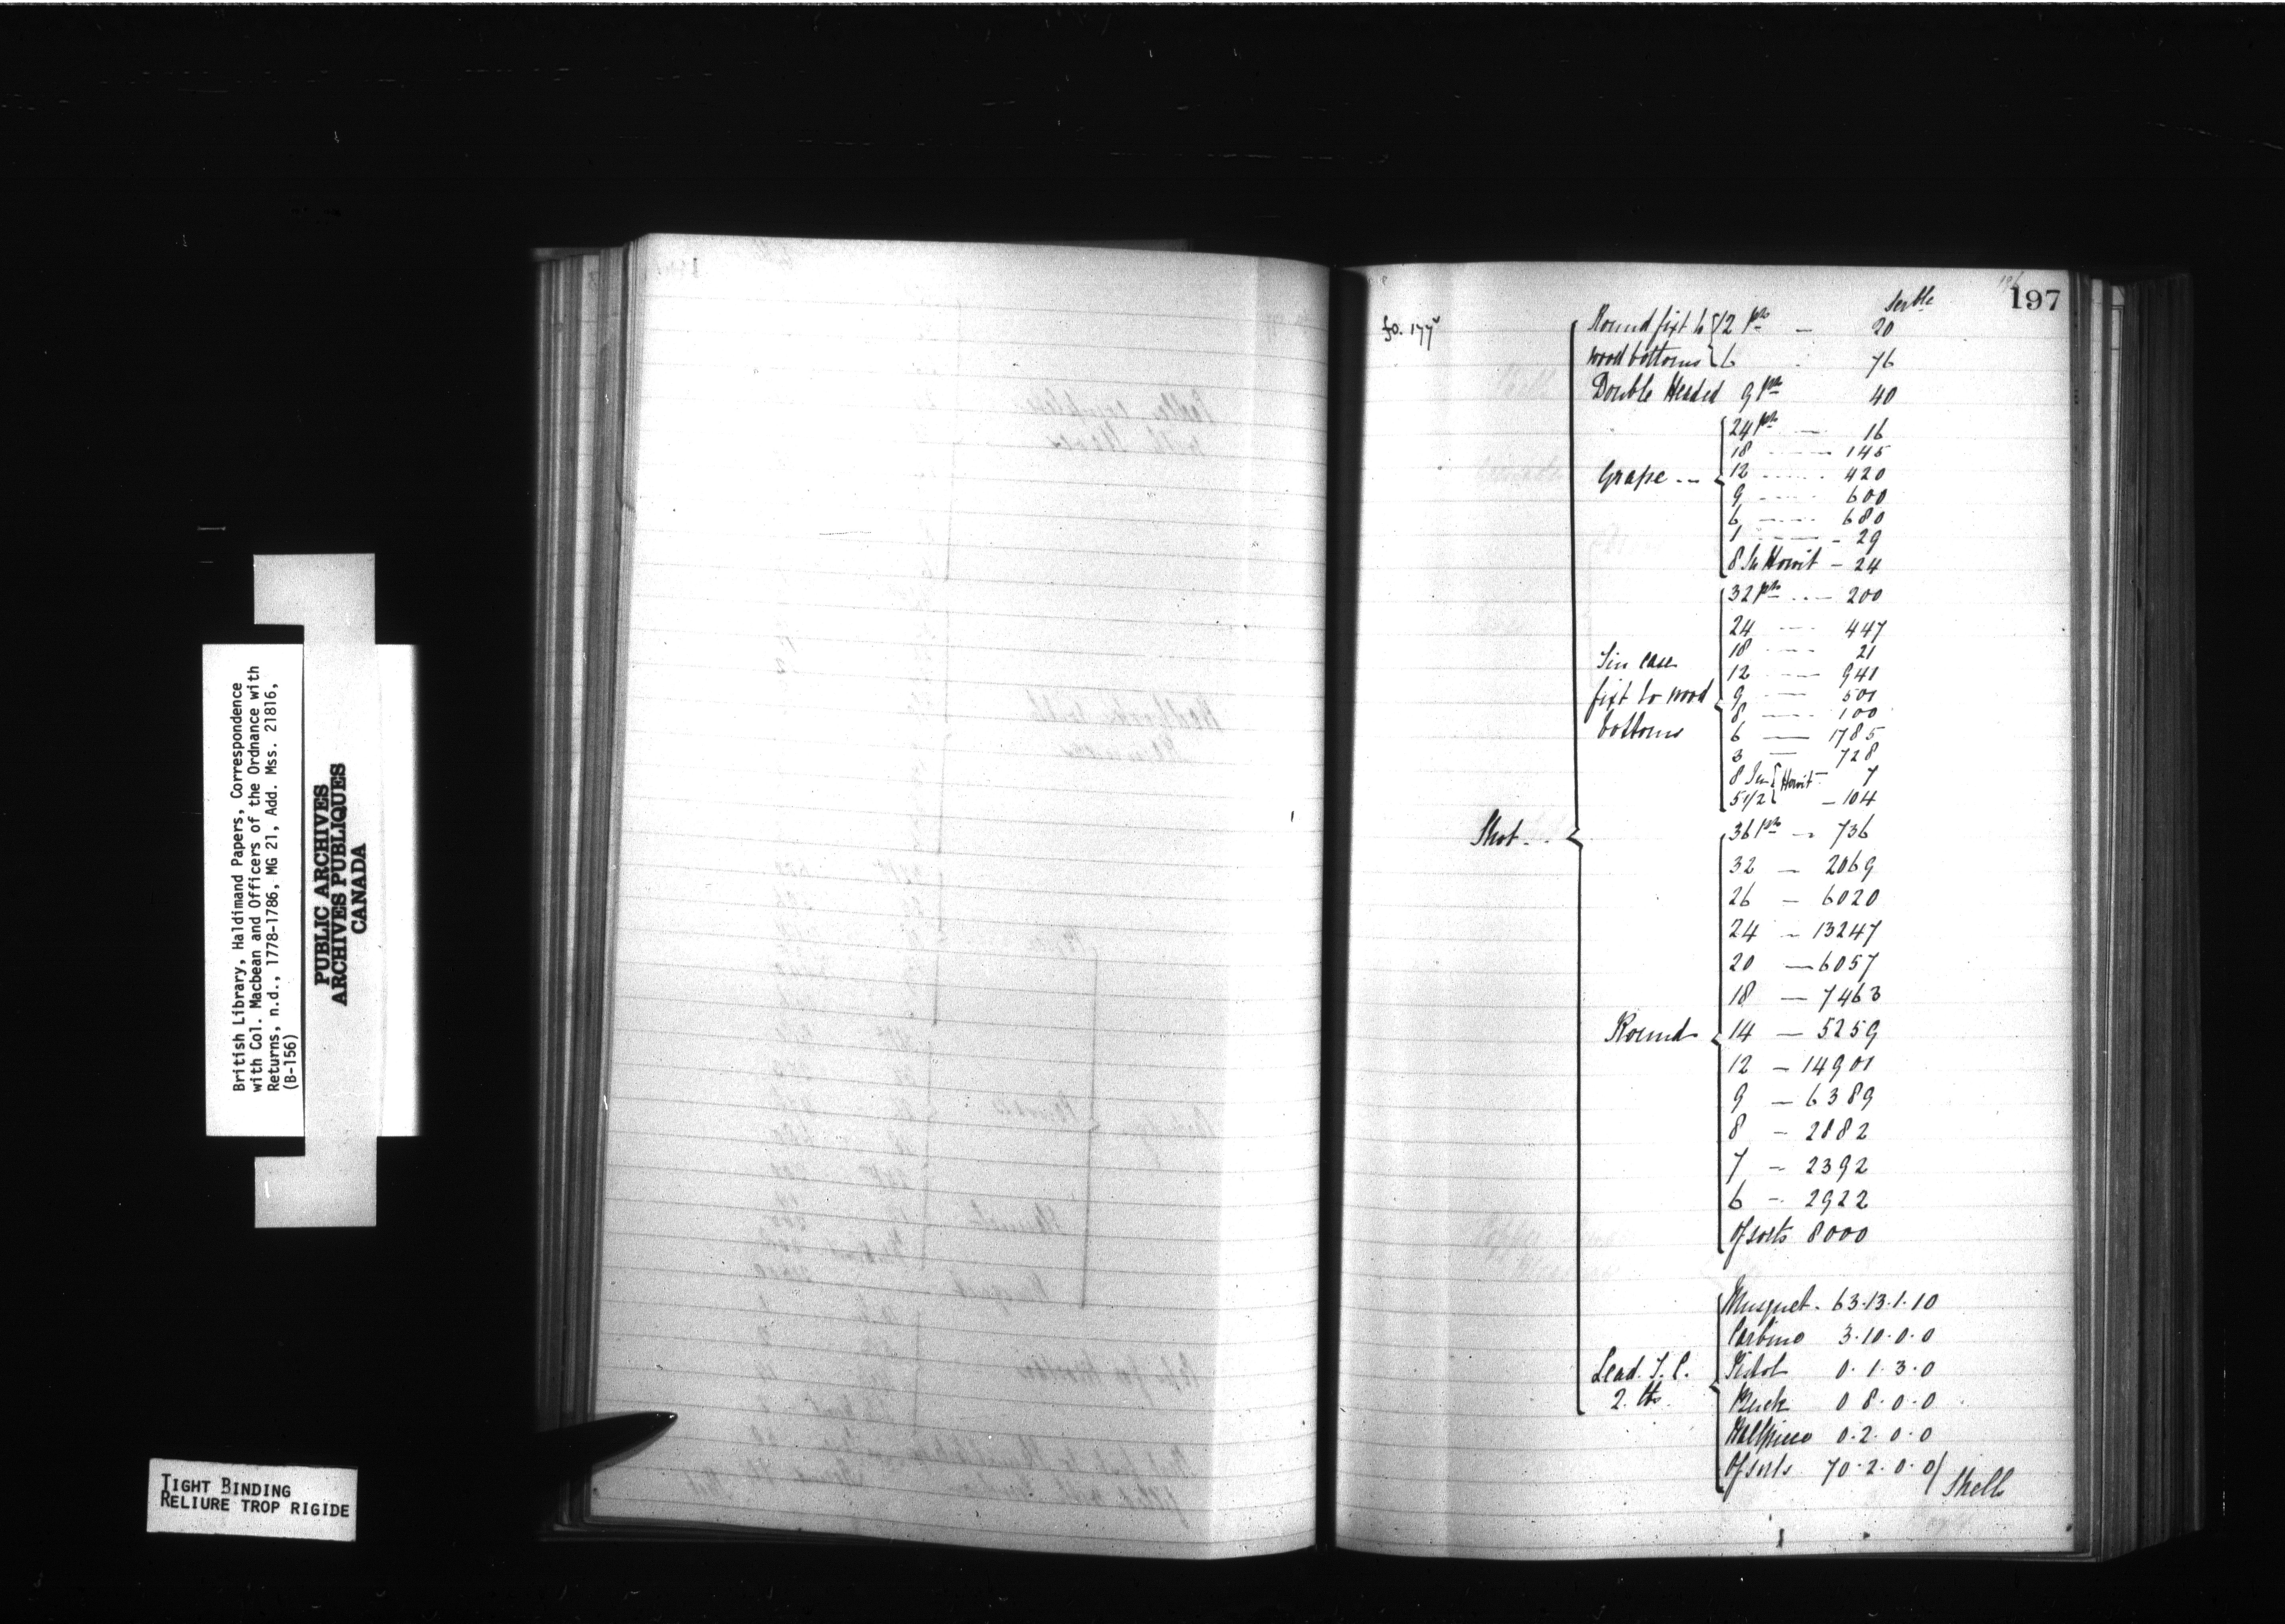 British Library, Haldimand Papers, Correspondence
with Col. Macbean and Officers of the Ordnance with
Returns, n.d., 1778-1786, MG 21, Add. Mss. 21816,
(B-156)
PUBLIC ARCHIVES
ARCHIVES PUBLIQUES
CANADA
TIGHT BINDING
RELIURE TROP RIGIDE
197
fo. 177
Serble
Round fixt to { 12 pr — 20
wood bottoms { 6 76
Double Headed 9 pr 40
Grape --
24 pr — 16
18 — 145
12 ---- 420
9 ---- 600
6 ---- 680
1 ---- 29
8 In Howit — 24
Tin case
fixt to wood
bottoms
32 pr --- 200
24 ---- 447
18 ---- 21
12 ---- 941
9 ---- 501
8 ---- 100
6 — 1785
3 — 728
8 In { Howit — 7
5 1/2 { — 104
Shot --
Round
36 pr — 736
32 — 2069
26 — 6020
24 — 13247
20 — 6057
18 — 7463
14 — 5259
12 — 14901
9 — 6389
8 — 2882
7 — 2392
6 — 2922
Of sorts 8000
Lead. T. C.
2. lb
Musquet. 63.13.1.10
Carbine 3.10.0.0
Pistol 0.1.3.0
Buck 0 8.0.0
Halfpiece 0.2.0.0
Of sorts 70.2.0.0/
Shells